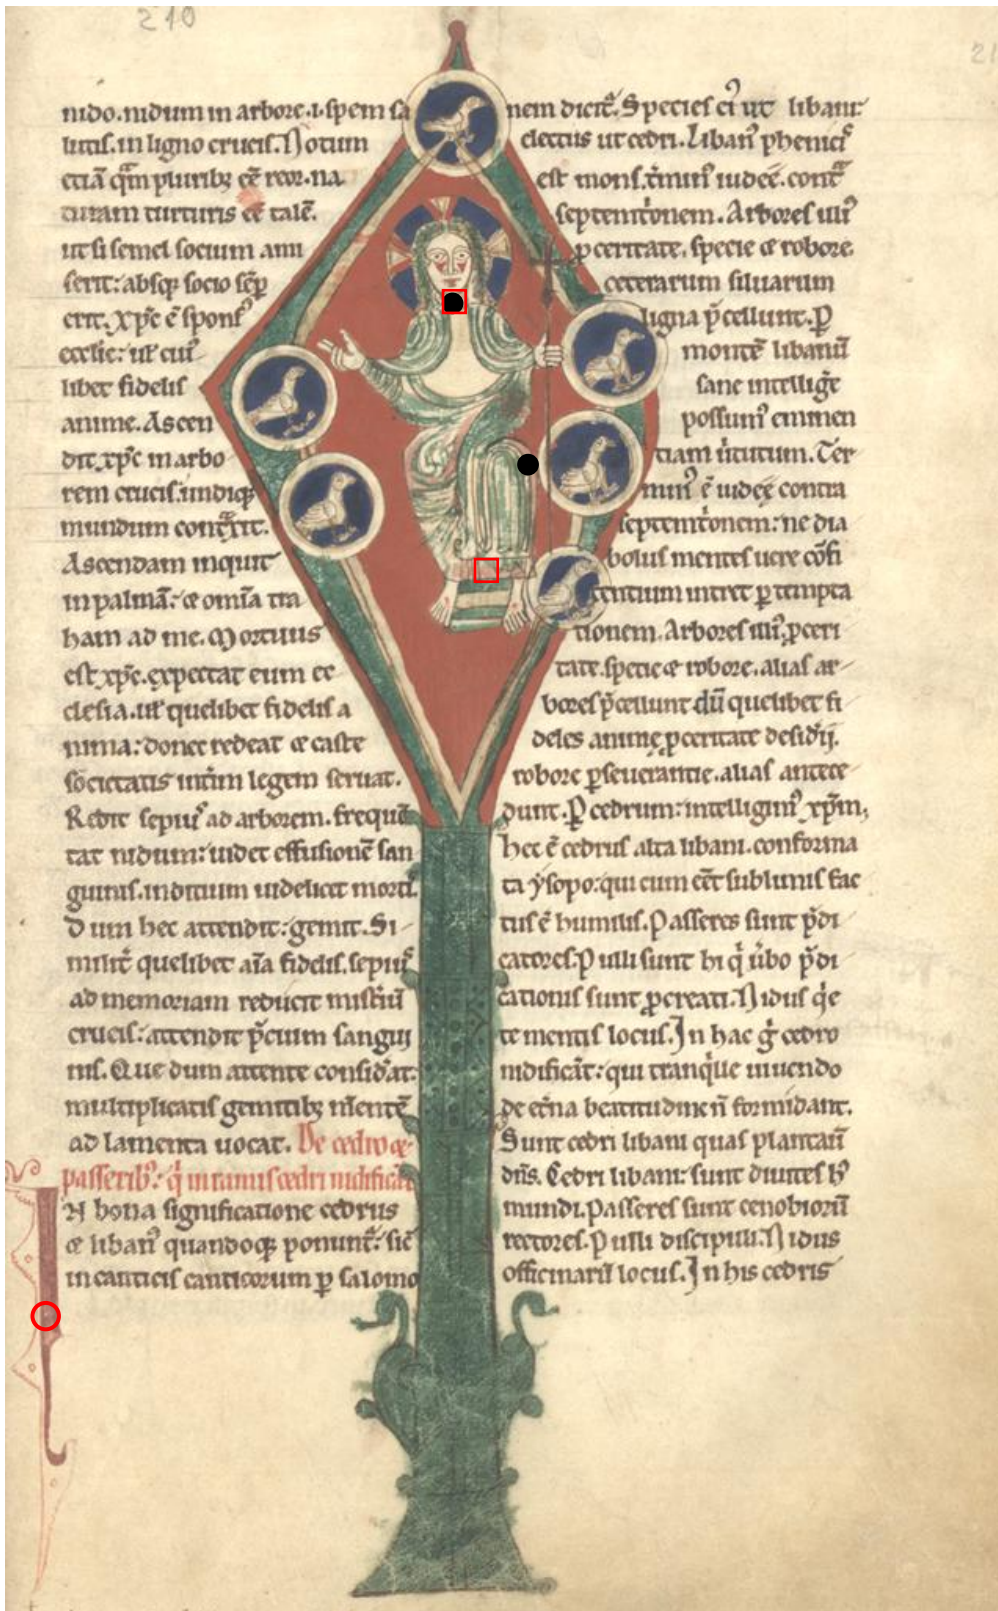 210
nido. nidum in arbore. i. spem sa
lutis. in ligno crucis. Notum
etiā qm̄ pluribꝫ eē reor. na
turam turturis eē talē.
ut si semel socium ami
serit: absqꝫ socio sēꝑ
erit. xp̄c ē spons᷒
eccl̄ie: ul̄ cui᷒
libet fidelis
anime. Ascen
dit xp̄c in arbo
rem crucis. undiqꝫ
mundum
Ascendam inquit
in palmā: ⁊ om̄ia tra
ham ad me. Mortuus
est xp̄c. expectat eum ec
clesia. ul̄ quelibet fidelis a
nima: donec redeat ⁊ caste
societatis legem seruat.
Redit sepiu᷒ ad arborem. frequē
tat nidum: uidet effusionē san
guinis. inditium uidelicet morti.
Dum hec attendit: gemit. Si
milit̄ quelibet aīa fidelis. sepiu᷒
ad memoriam reducit mist̄iū
crucis: attendit p̄cium sangui
nis. Que dum attente consid̄at:
multiplicatis gemitibꝫ mentē
ad lamenta uocat. De cedro ⁊
passerib᷒: q̇ in ramis cedri nidificāt
IN bona significatione cedrus
⁊ liban᷒ quandoqꝫ ponunt᷒: sic̄
in canticis canticorum ꝑ salomo
21
nem dicit᷒. Species ei᷒ ut libani:
electus ut cedri. Liban᷒ phenicis
est mons. t̄min᷒ iudeę. cont̄
septemt̄onem. Arbores illi᷒
ꝓceritate. specie ⁊ robore
ceterarum siluarum
ligna p̄cellunt. ꝑ
montē libanū
sane intelliḡe
possum᷒ eminen
tiam ūtutum. Ter
min᷒ ē iudeę contra
septemt̄onem: ne dia
bolus mentes uere cōfi
tentium intret ꝑ tempta
tionem. Arbores illi᷒ ꝓceri
tate. specie ⁊ robore. alias ar
bores p̄cellunt dū quelibet fi
deles animę ꝓceritate desid̄ij.
robore ꝑseuerantie. alias antece
dunt. ꝑ cedrum: intelligim᷒ xp̄m,
hec ē cedrus alta libani. conforma
ta ysopo: qui cum eēt sublimis fac
tus ē humilis. Passeres sunt p̄di
catores. Pulli sunt hi q̇ ūbo p̄di
cationis sunt ꝓcreati. Nidus q̇e
te mentis locus. In hac ḡ cedro
nidificāt: qui tranq̇lle uiuendo
de et̄na beatitudine ñ formidant.
Sunt cedri libani quas plantauit
dn̄s. Cedri libani: sunt diuites h᷒
mundi. Passeres sunt cenobiorū
rectores. Pulli discipuli. Nidus
officinarū locus. In his cedris